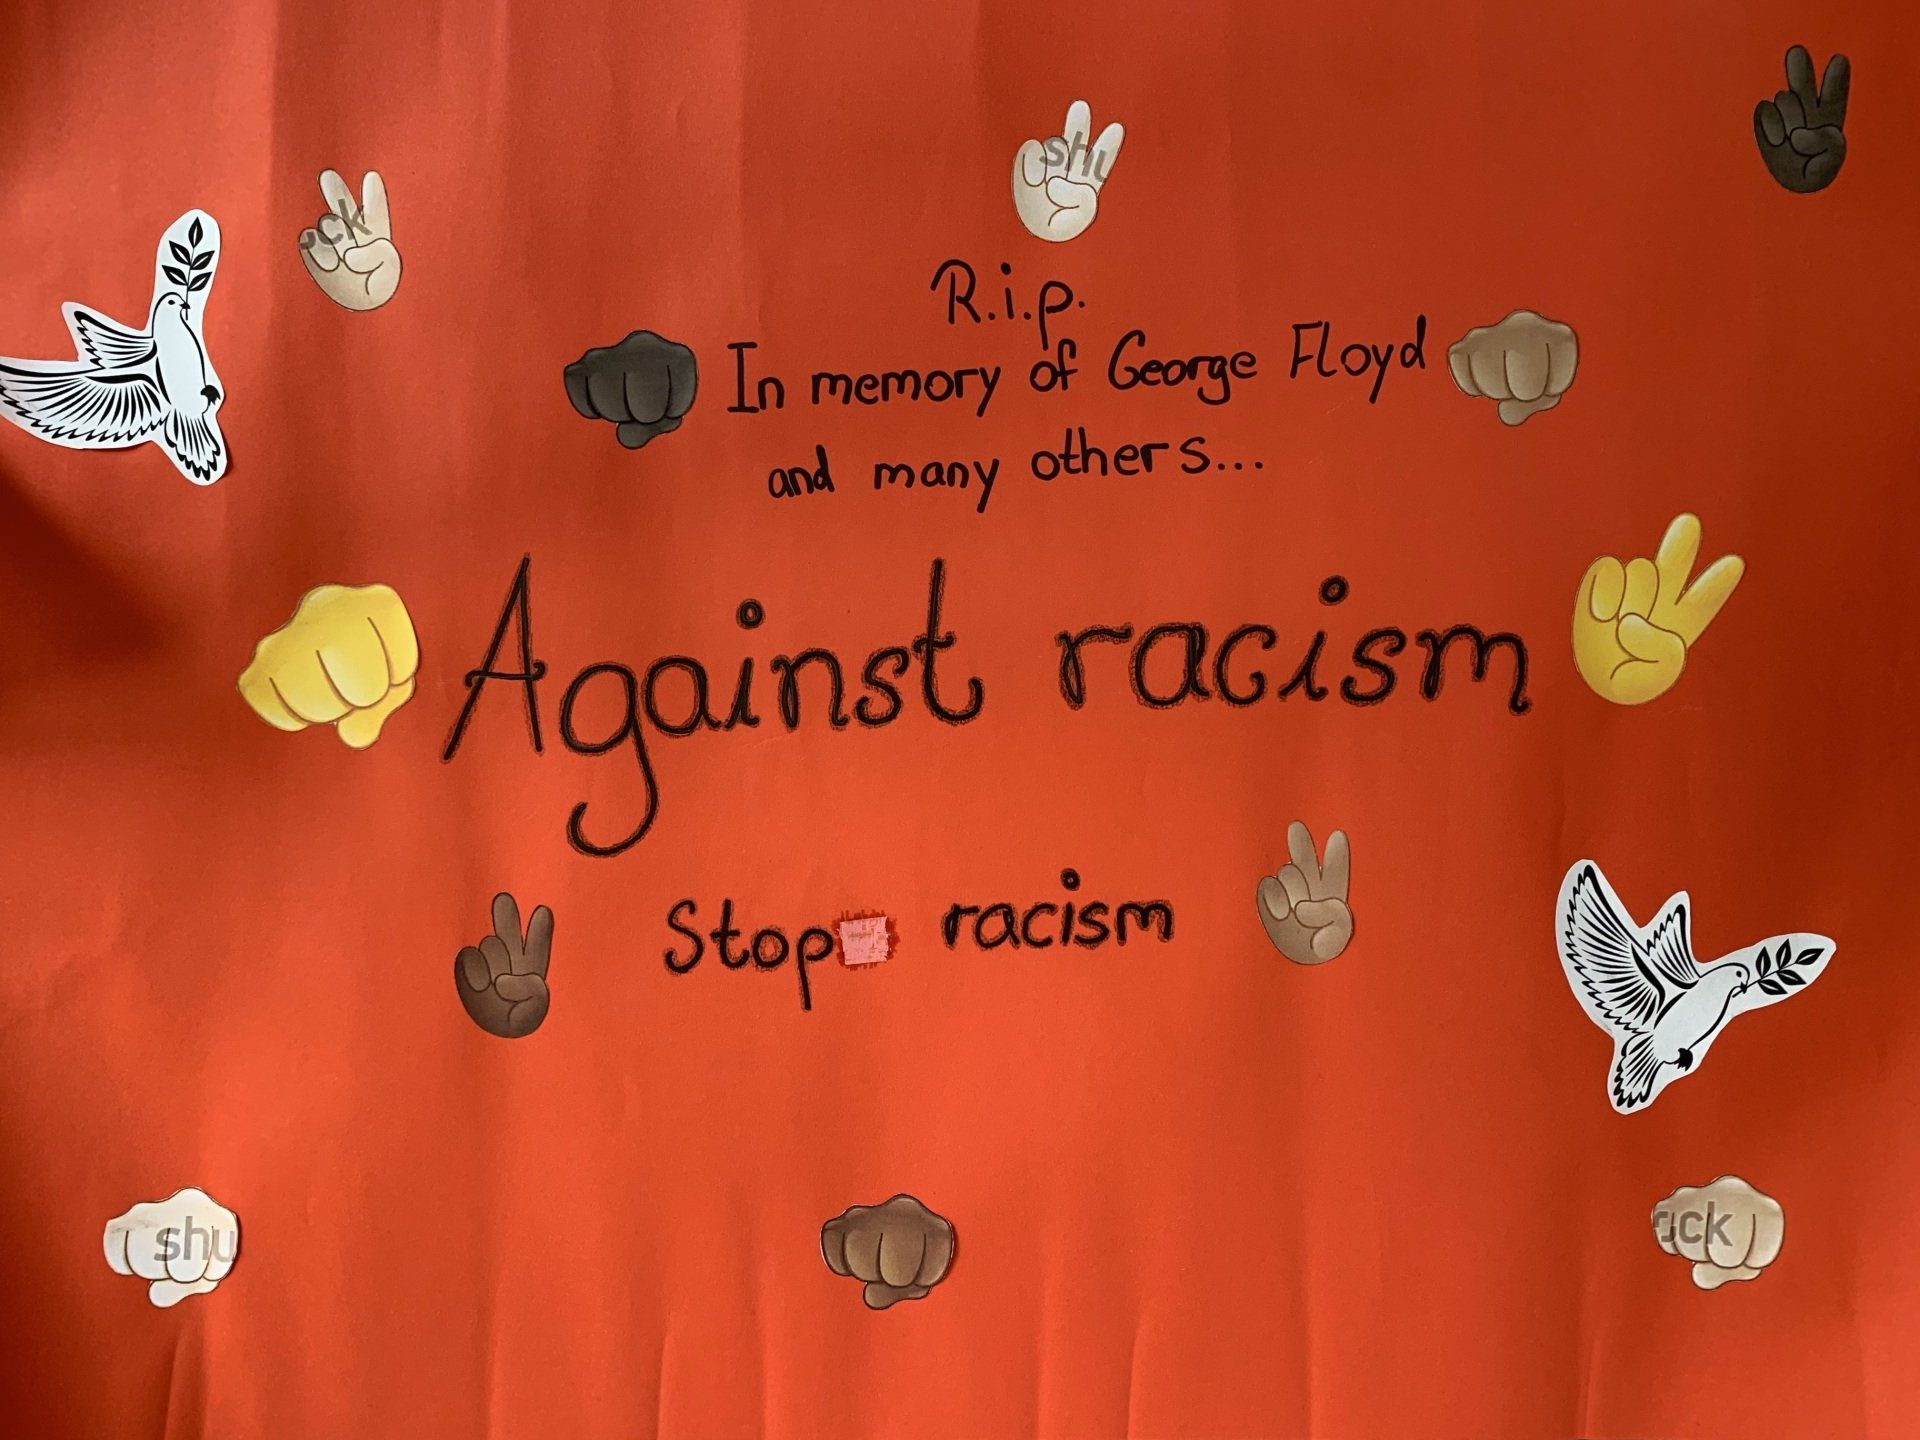 shu
ck
R.i.p.
In memory of George Floyd
and many others...
Against racism
Stop racism
shu
ck